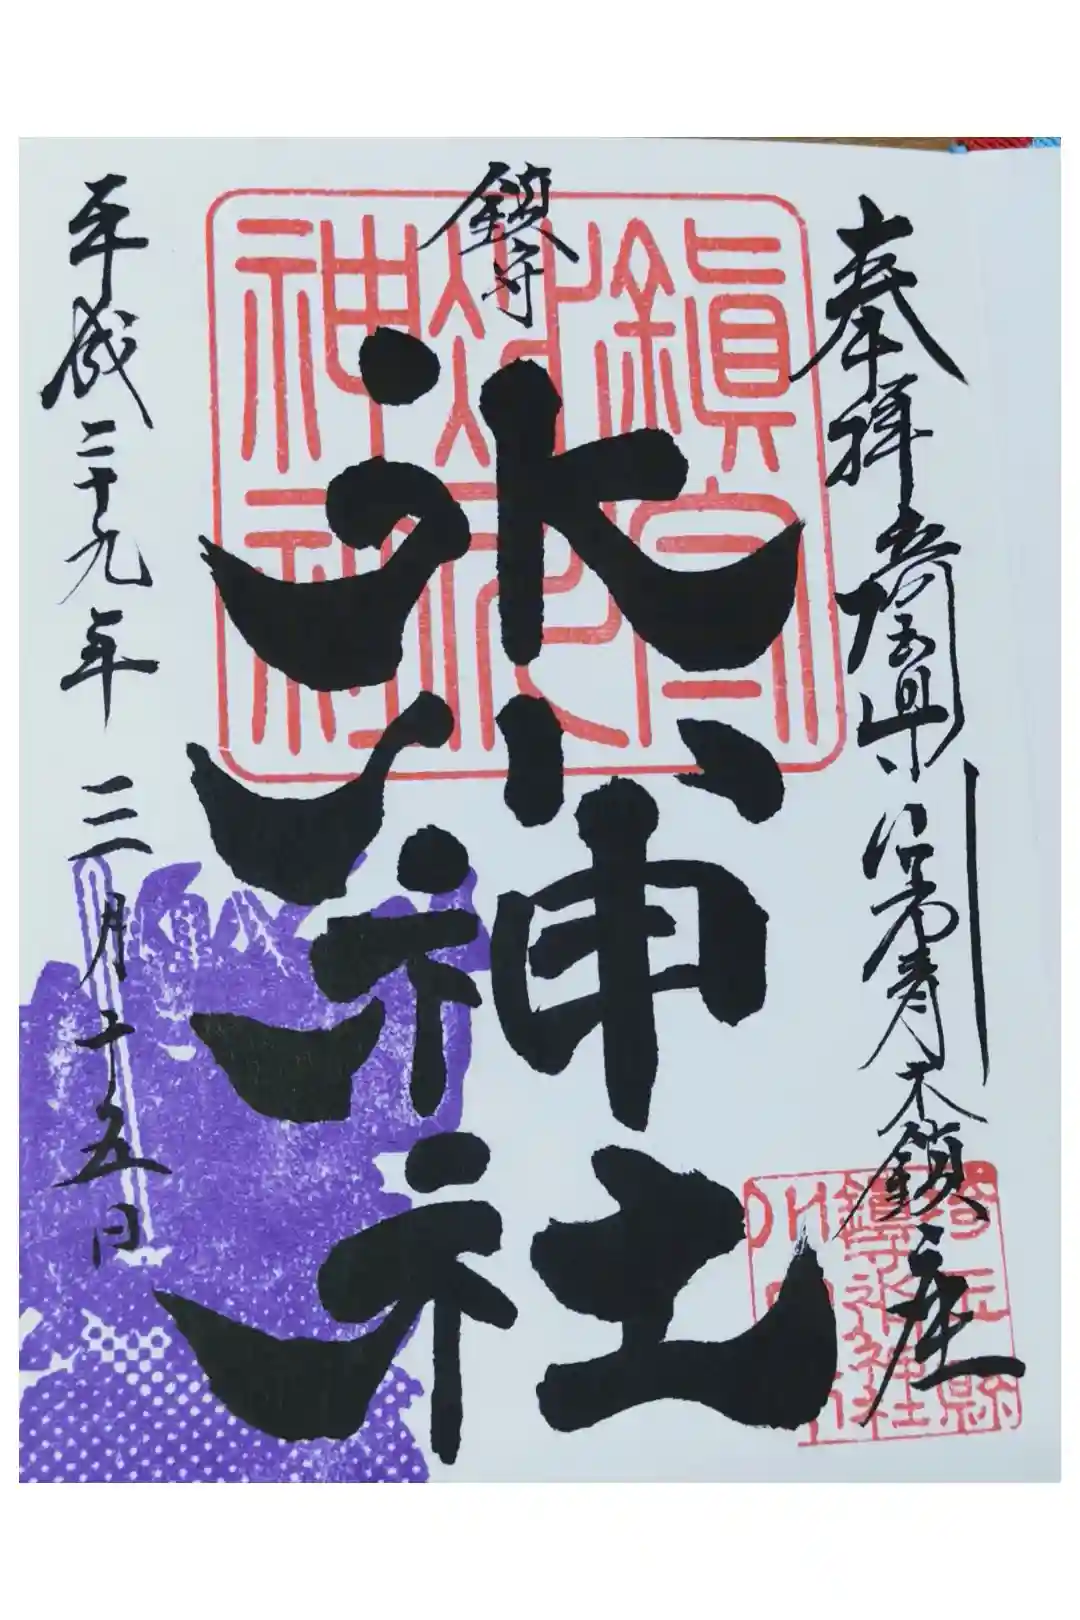 奉拝 埼玉県川口市青木鎮座
鎮守
氷川神社
平成二十九年三月十五日
鎮守氷川神社
埼玉縣
鎮守氷川神社
川口